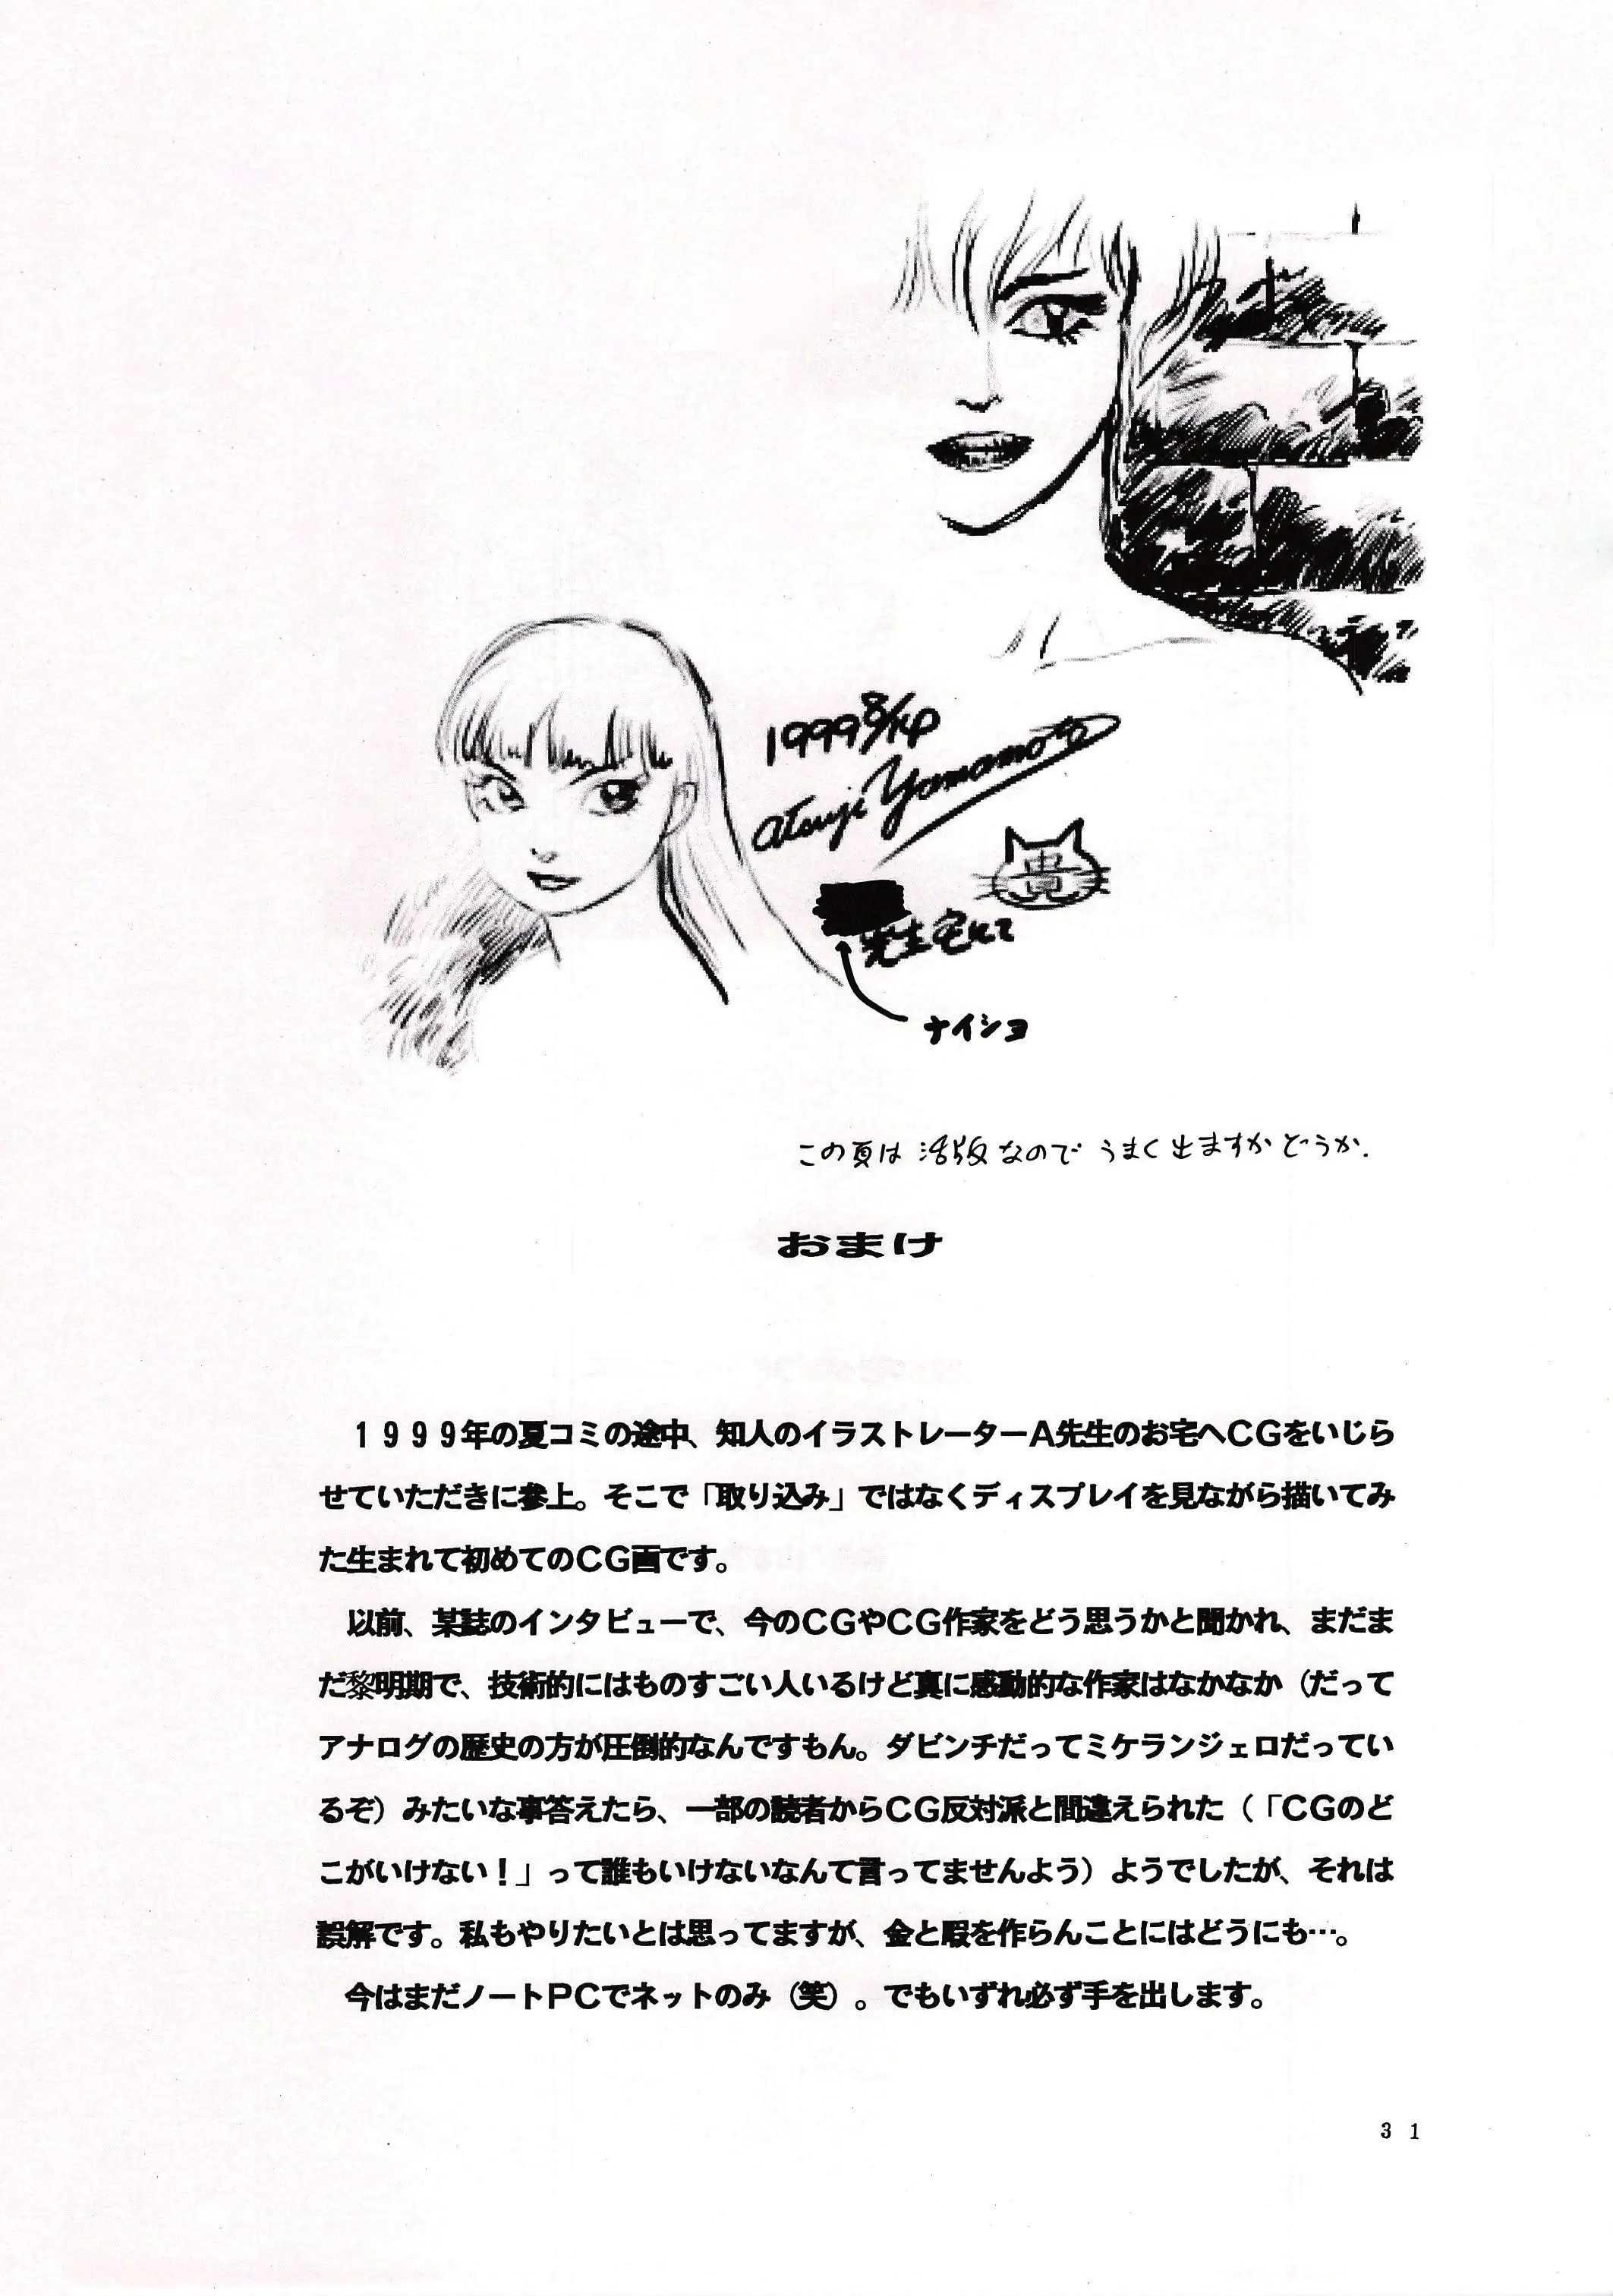 1999 8/14
Atsuji Yamamoto
貴
先生宅にて
ナイショ
この頁は活版なのでうまく出ますかどうか.
おまけ
１９９９年の夏コミの途中、知人のイラストレーターＡ先生のお宅へＣＧをいじら
せていただきに参上。そこで「取り込み」ではなくディスプレイを見ながら描いてみ
た生まれて初めてのＣＧ画です。
以前、某誌のインタビューで、今のＣＧやＣＧ作家をどう思うかと聞かれ、まだま
だ黎明期で、技術的にはものすごい人いるけど真に感動的な作家はなかなか（だって
アナログの歴史の方が圧倒的なんですもん。ダビンチだってミケランジェロだってい
るぞ）みたいな事答えたら、一部の読者からＣＧ反対派と間違えられた（「ＣＧのど
こがいけない！」って誰もいけないなんて言ってませんよう）ようでしたが、それは
誤解です。私もやりたいとは思ってますが、金と暇を作らんことにはどうにも…。
今はまだノートＰＣでネットのみ（笑）。でもいずれ必ず手を出します。
３１